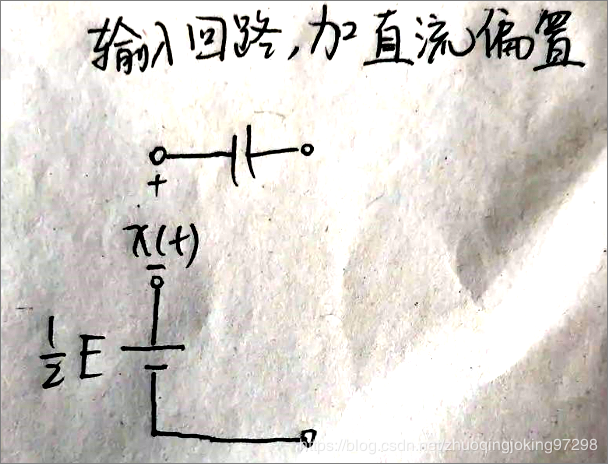 输入回路,加直流偏置
+
x(t)
-
1/2 E
https://blog.csdn.net/zhuoqingjoking97298